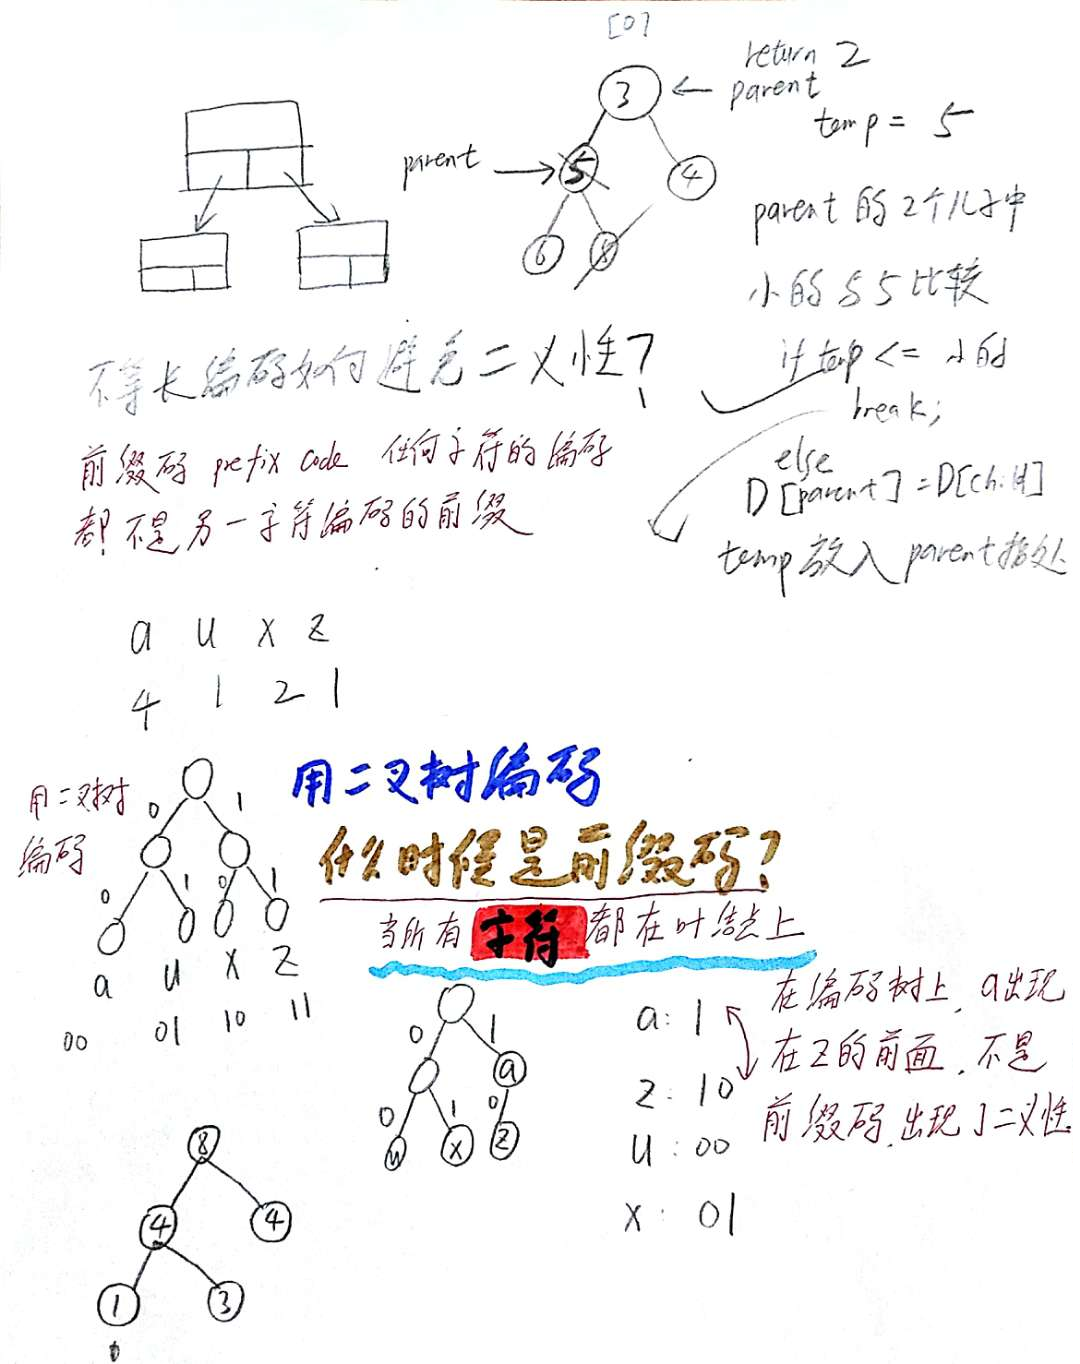 [0]
return 2
3 ← parent
temp = 5
parent → 5 4
6 8
parent 的 2个儿子中
小的与5比较
if temp <= 小的
break;
else
D[parent] = D[child]
temp 放入 parent 指处
不等长编码如何避免二义性?
前缀码 prefix code 任何字符的编码
都不是另一字符编码的前缀
a u x z
4 1 2 1
用二叉树
编码
0 1
0 1 0 1
a u x z
00 01 10 11
用二叉树编码
什么时候是前缀码?
当所有字符都在叶结点上
0 1
a
0 1 0
u x z
a: 1
z: 10
u: 00
x: 01
在编码树上, a出现
在z的前面, 不是
前缀码, 出现了二义性
8
4 4
1 3